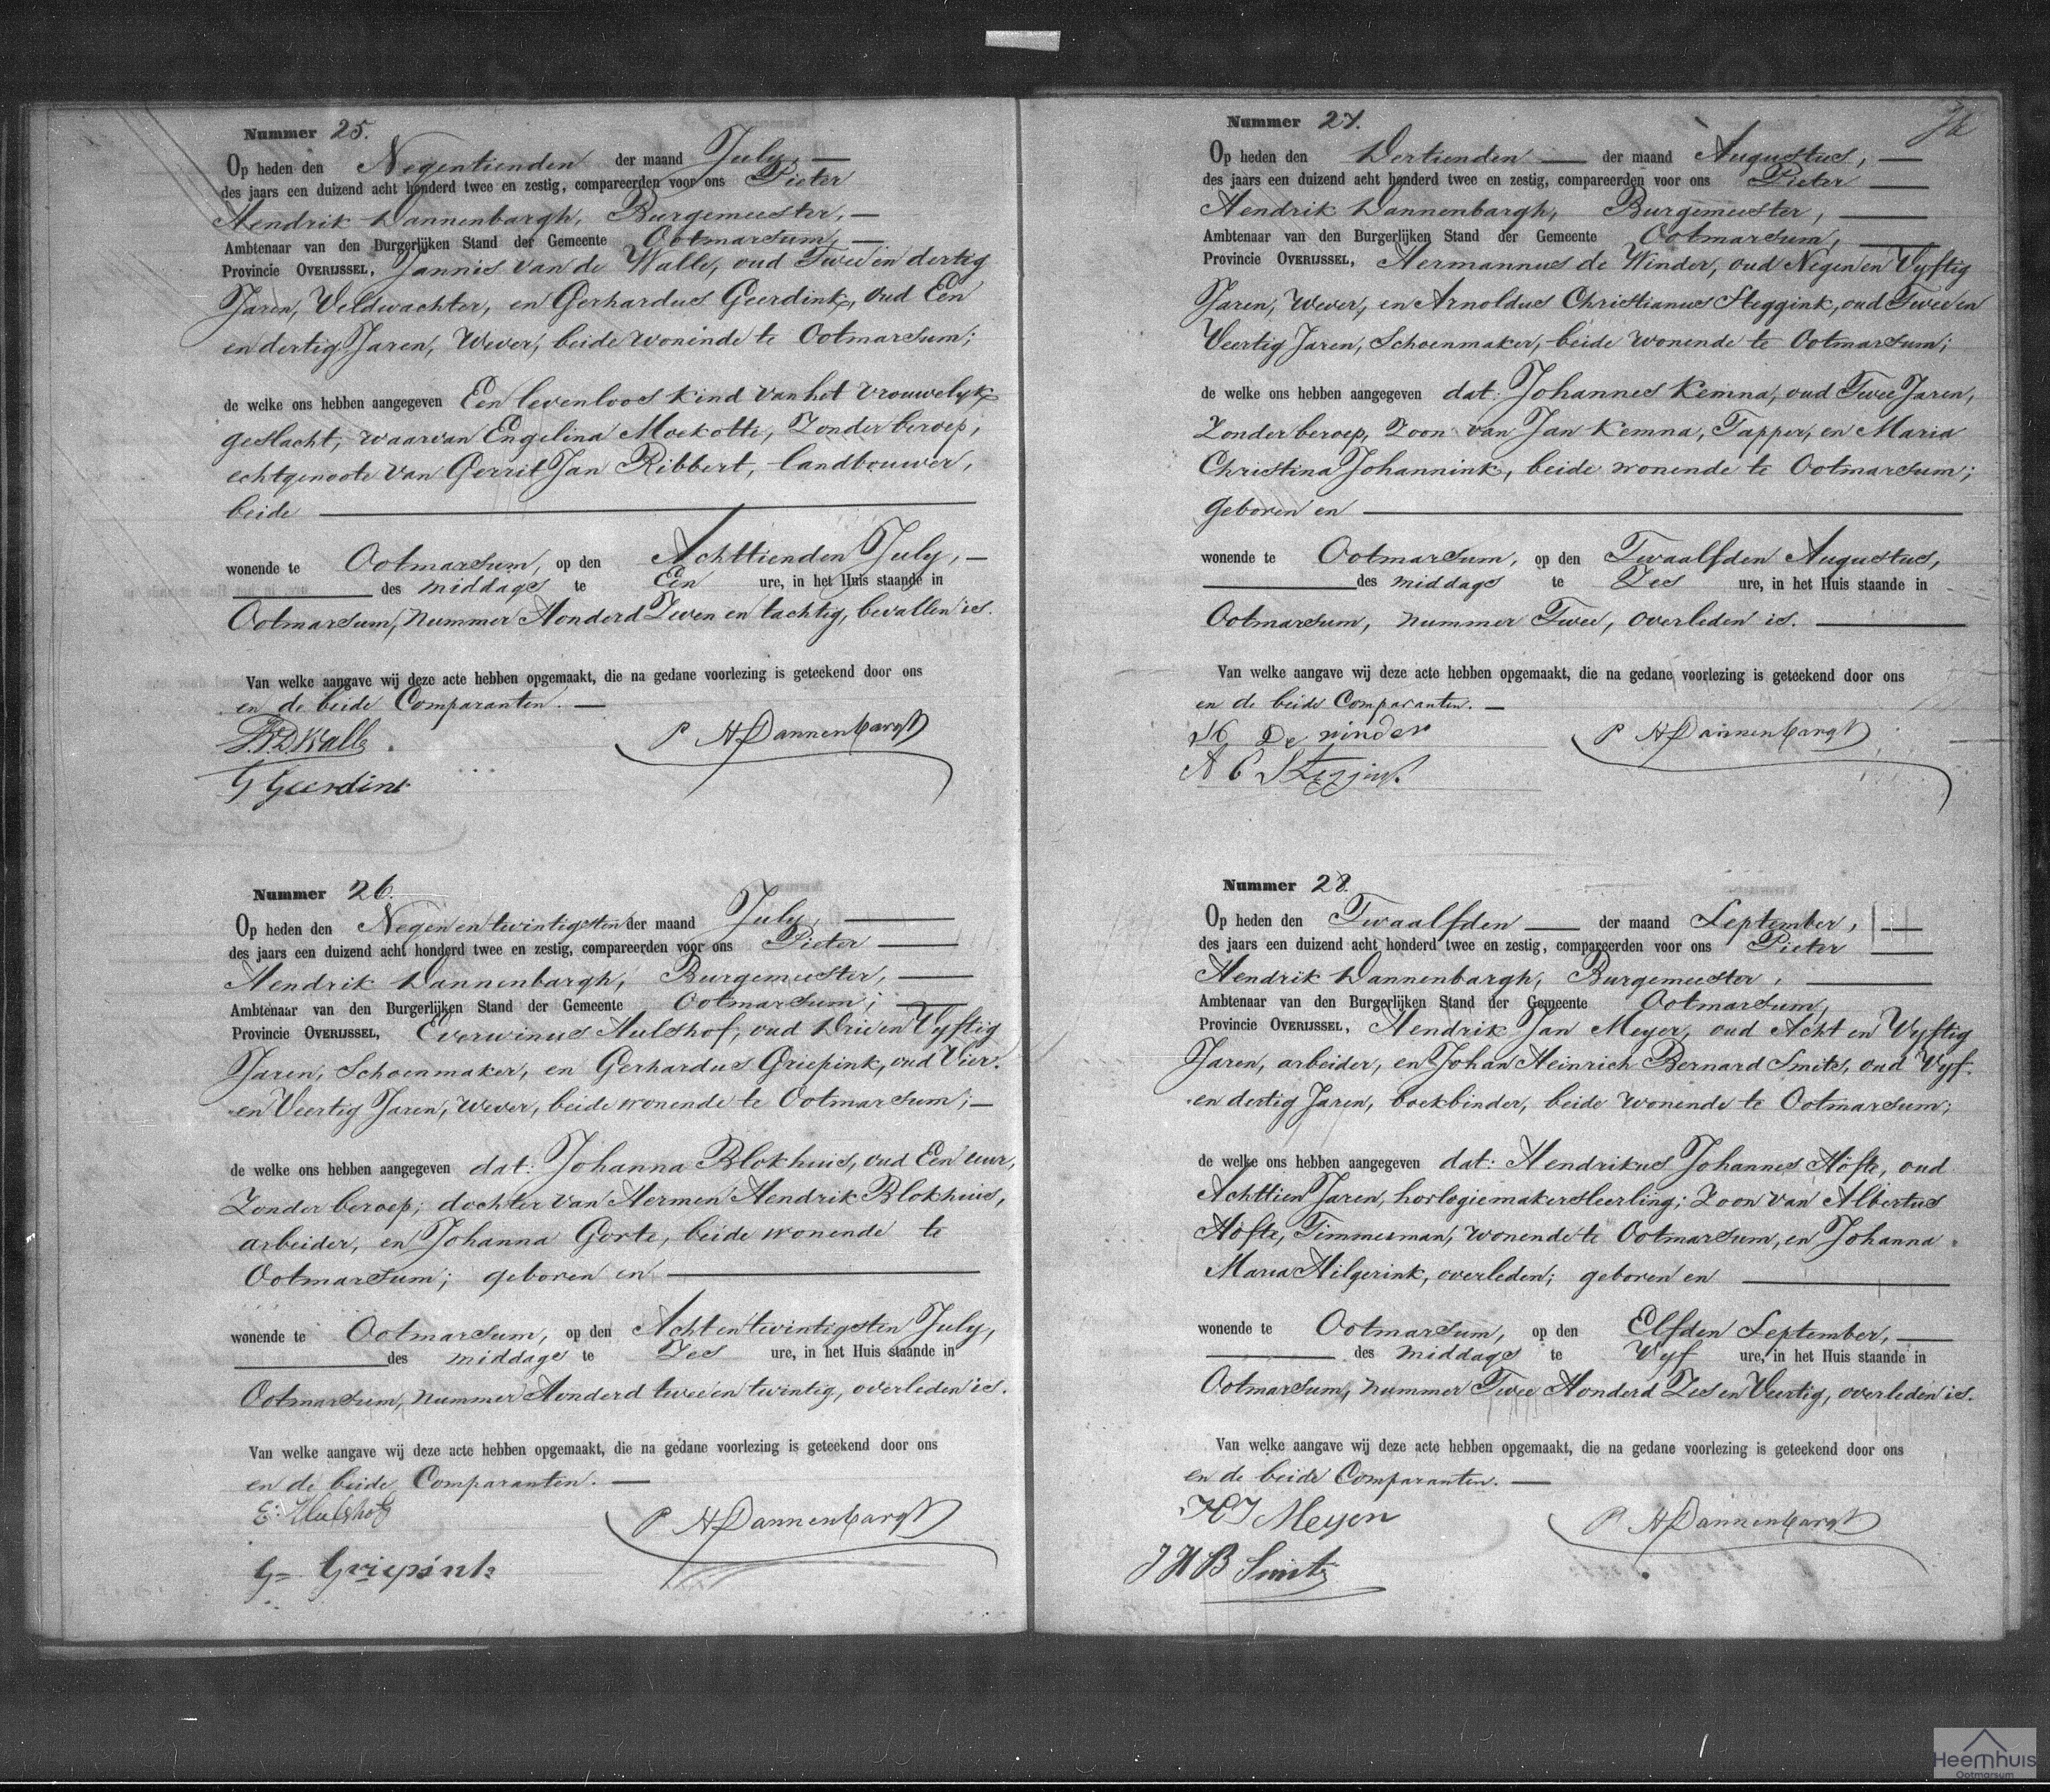 Nummer 25.
Op heden den Negentienden der maand July,
des jaars een duizend acht honderd twee en zestig, compareerden voor ons Pieter
Hendrik Dannenbargh, Burgemeester,
Ambtenaar van den Burgerlijken Stand der Gemeente Ootmarsum,
Provincie OVERIJSSEL, Jannis van de Walle, oud Twee en dertig
Jaren, Veldwachter, en Gerhardus Geerdink, oud Een
en dertig Jaren, Wever, beide wonende te Ootmarsum;
de welke ons hebben aangegeven Een levenloos kind van het vrouwelyk
geslacht, waarvan Engelina Moekotte, Zonder beroep,
echtgenoote van Gerrit Jan Ribbert, landbouwer,
beide
wonende te Ootmarsum, op den Achttienden July,
des middags te Een ure, in het Huis staande in
Ootmarsum, nummer Honderd Zeven en tachtig, bevallen is.
Van welke aangave wij deze acte hebben opgemaakt, die na gedane voorlezing is geteekend door ons
en de beide Comparanten.
P H Dannenbargh
G Geerdink
Nummer 26.
Op heden den Negen en twintigsten der maand July,
des jaars een duizend acht honderd twee en zestig, compareerden voor ons Pieter
Hendrik Dannenbargh, Burgemeester,
Ambtenaar van den Burgerlijken Stand der Gemeente Ootmarsum;
Provincie OVERIJSSEL, Everwinus Hulshof, oud Drie en Vyftig
Jaren, Schoenmaker, en Gerhardus Griepink, oud Vier
en Veertig Jaren, Wever, beide wonende te Ootmarsum;
de welke ons hebben aangegeven dat: Johanna Blokhuis, oud Een uur,
Zonder beroep; dochter van Hermen Hendrik Blokhuis,
arbeider, en Johanna Gorte, beide wonende te
Ootmarsum; geboren en
wonende te Ootmarsum, op den Acht en twintigsten July,
des middags te Zes ure, in het Huis staande in
Ootmarsum, nummer Honderd twee en twintig, overleden is.
Van welke aangave wij deze acte hebben opgemaakt, die na gedane voorlezing is geteekend door ons
en de beide Comparanten.
E. Hulshof
P H Dannenbargh
G Griepink
Nummer 27.
Op heden den Dertienden der maand Augustus,
des jaars een duizend acht honderd twee en zestig, compareerden voor ons Pieter
Hendrik Dannenbargh, Burgemeester,
Ambtenaar van den Burgerlijken Stand der Gemeente Ootmarsum,
Provincie OVERIJSSEL, Hermannus de Winder, oud Negen en Vyftig
Jaren, Wever, en Arnoldus Christianus Steggink, oud Twee en
Veertig Jaren, Schoenmaker, beide wonende te Ootmarsum;
de welke ons hebben aangegeven dat: Johannes Kemna, oud Twee Jaren,
Zonder beroep, Zoon van Jan Kemna, Tapper, en Maria
Christina Johannink, beide wonende te Ootmarsum;
geboren en
wonende te Ootmarsum, op den Twaalfden Augustus,
des middags te Zes ure, in het Huis staande in
Ootmarsum, nummer Twee, overleden is.
Van welke aangave wij deze acte hebben opgemaakt, die na gedane voorlezing is geteekend door ons
en de beide Comparanten.
H De winder
P H Dannenbargh
A C Steggink
Nummer 28.
Op heden den Twaalfden der maand September,
des jaars een duizend acht honderd twee en zestig, compareerden voor ons Pieter
Hendrik Dannenbargh, Burgemeester,
Ambtenaar van den Burgerlijken Stand der Gemeente Ootmarsum,
Provincie OVERIJSSEL, Hendrik Jan Meyer, oud Acht en Vyftig
Jaren, arbeider, en Johan Heinrich Bernard Smits, oud Vyf
en dertig Jaren, boekbinder, beide wonende te Ootmarsum;
de welke ons hebben aangegeven dat: Hendrikus Johannes Höfte, oud
Achttien Jaren, horlogiemakersleerling; Zoon van Albertus
Höfte, Timmerman, wonende te Ootmarsum, en Johanna
Maria Hilgerink, overleden; geboren en
wonende te Ootmarsum, op den Elfden September,
des middags te Vyf ure, in het Huis staande in
Ootmarsum, nummer Twee Honderd Zes en Veertig, overleden is.
Van welke aangave wij deze acte hebben opgemaakt, die na gedane voorlezing is geteekend door ons
en de beide Comparanten.
HJ Meyer
P H Dannenbargh
J H B Smits
Heemhuis
Ootmarsum